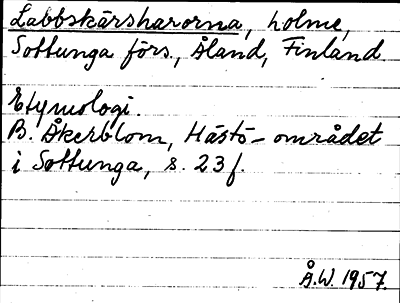 Labbskärsharorna, holme,
Sottunga förs., Åland, Finland.
Etymologi.
B. Åkerblom, Hästö-området
i Sottunga, s. 23 f.
Å.W. 1957.